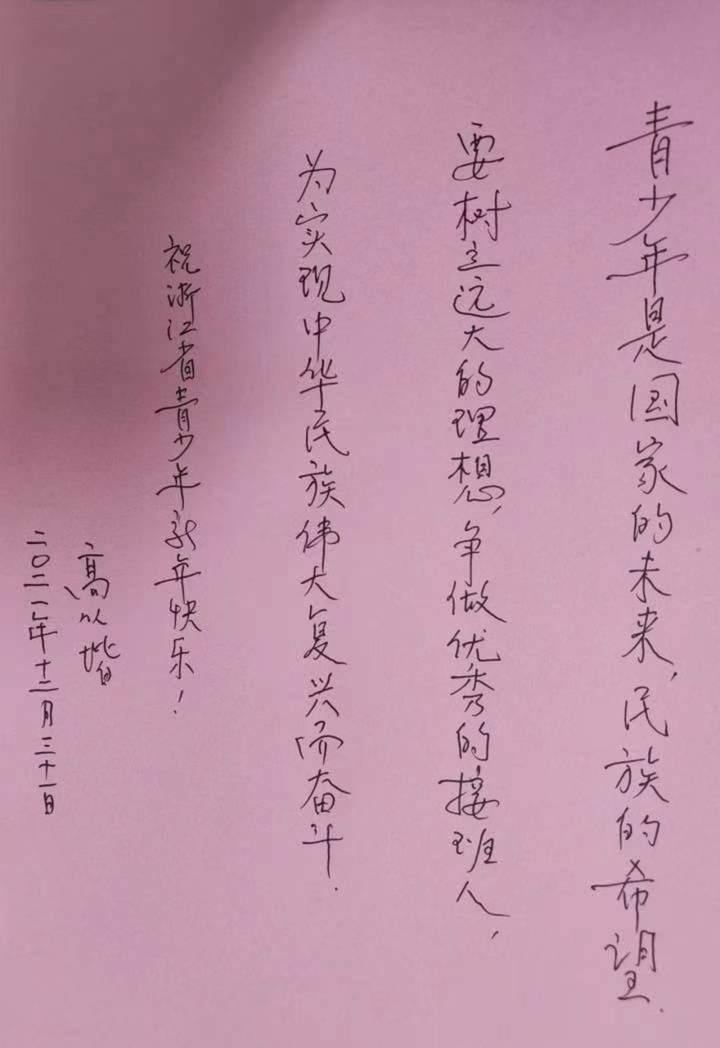 青少年是国家的未来，民族的希望．
要树立远大的理想，争做优秀的接班人，
为实现中华民族伟大复兴而奋斗．
祝浙江省青少年新年快乐！
高从堦
二〇二一年十二月三十一日